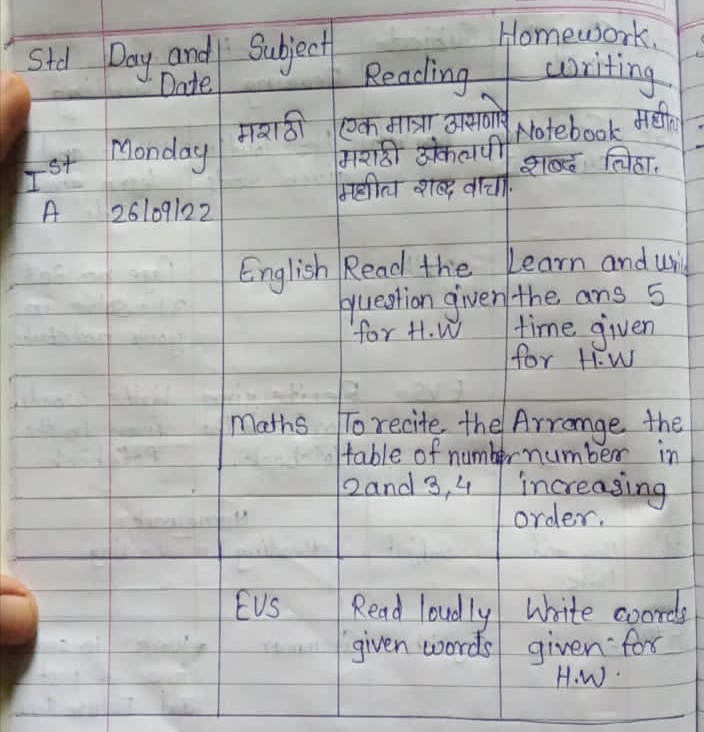 Homework.
Std Day and Date Subject Reading writing
Ist A Monday 26/09/22
मराठी
एक मात्रा असणारे
मराठी अंकलपी
मधील शब्द वाचा.
Notebook मधील
शब्द लिहा.
English
Read the
question given
for H.W
Learn and write
the ans 5
time given
for H.W
Maths
To recite the
table of number
2 and 3,4
Arrange the
number in
increasing
order.
EVS
Read loudly
given words
Write words
given for
H.W.